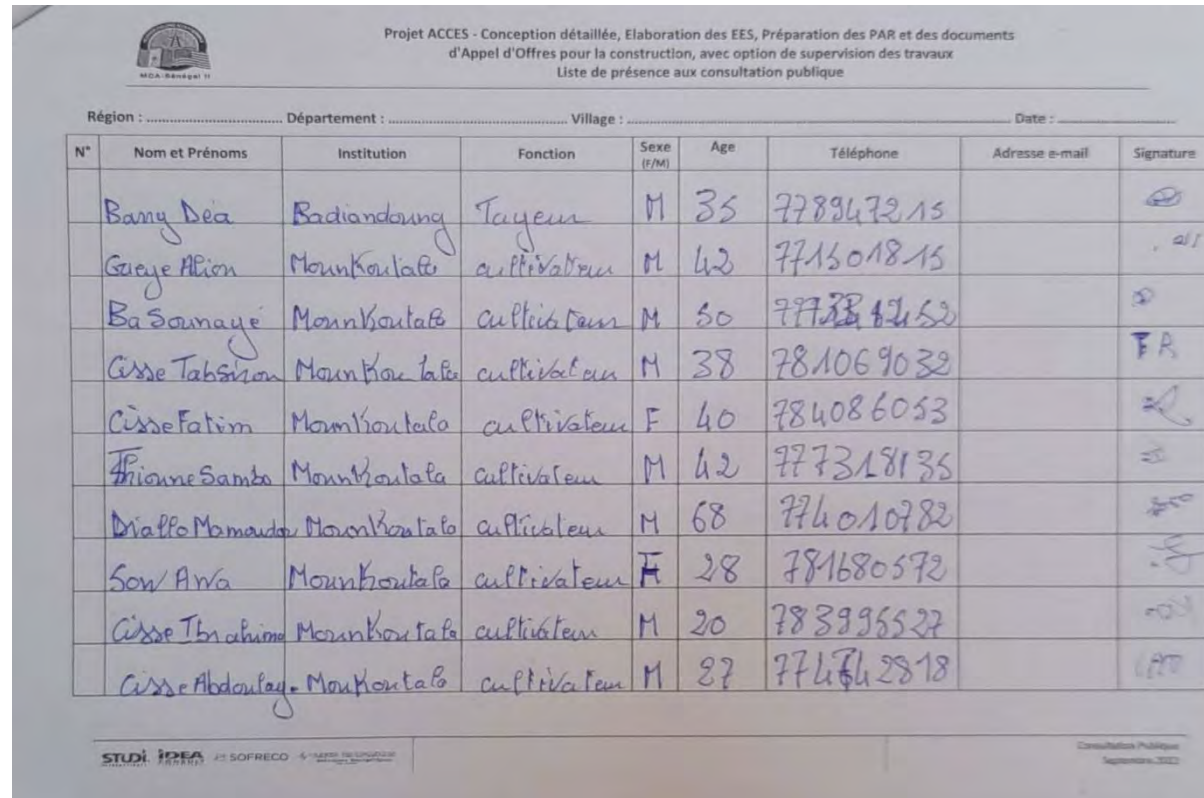 MCA-Sénégal II
Projet ACCES - Conception détaillée, Elaboration des EES, Préparation des PAR et des documents
d'Appel d'Offres pour la construction, avec option de supervision des travaux
Liste de présence aux consultation publique
Région : ................................ Département : .......................................... Village : .......................................................................................... Date : ............................
N° Nom et Prénoms Institution Fonction Sexe (F/M) Age Téléphone Adresse e-mail Signature
Barry Déa Badiandoung Tayeur M 35 778947215
Gueye Alion Mounkoutala cultivateur M 42 771501815
Ba Sounayé Mounkoutala cultivateur M 50
Cisse Mounkoutala cultivateur M 38 781069032 FR
Cisse Fatim Mounkoutala cultivateur F 40 784086053
Thionne Sambo Mounkoutala cultivateur M 42 777318135
Diallo Mamoudou Mounkoutala cultivateur M 68 774010782
Sow Awa Mounkoutala cultivateur F 28 781680572
Cisse Ibrahime Mounkoutala cultivateur M 20 783996527
Cisse Abdoulay Moukoutala cultivateur M 27
STUDI IDEA SOFRECO
Consultation Publique
Septembre 2022